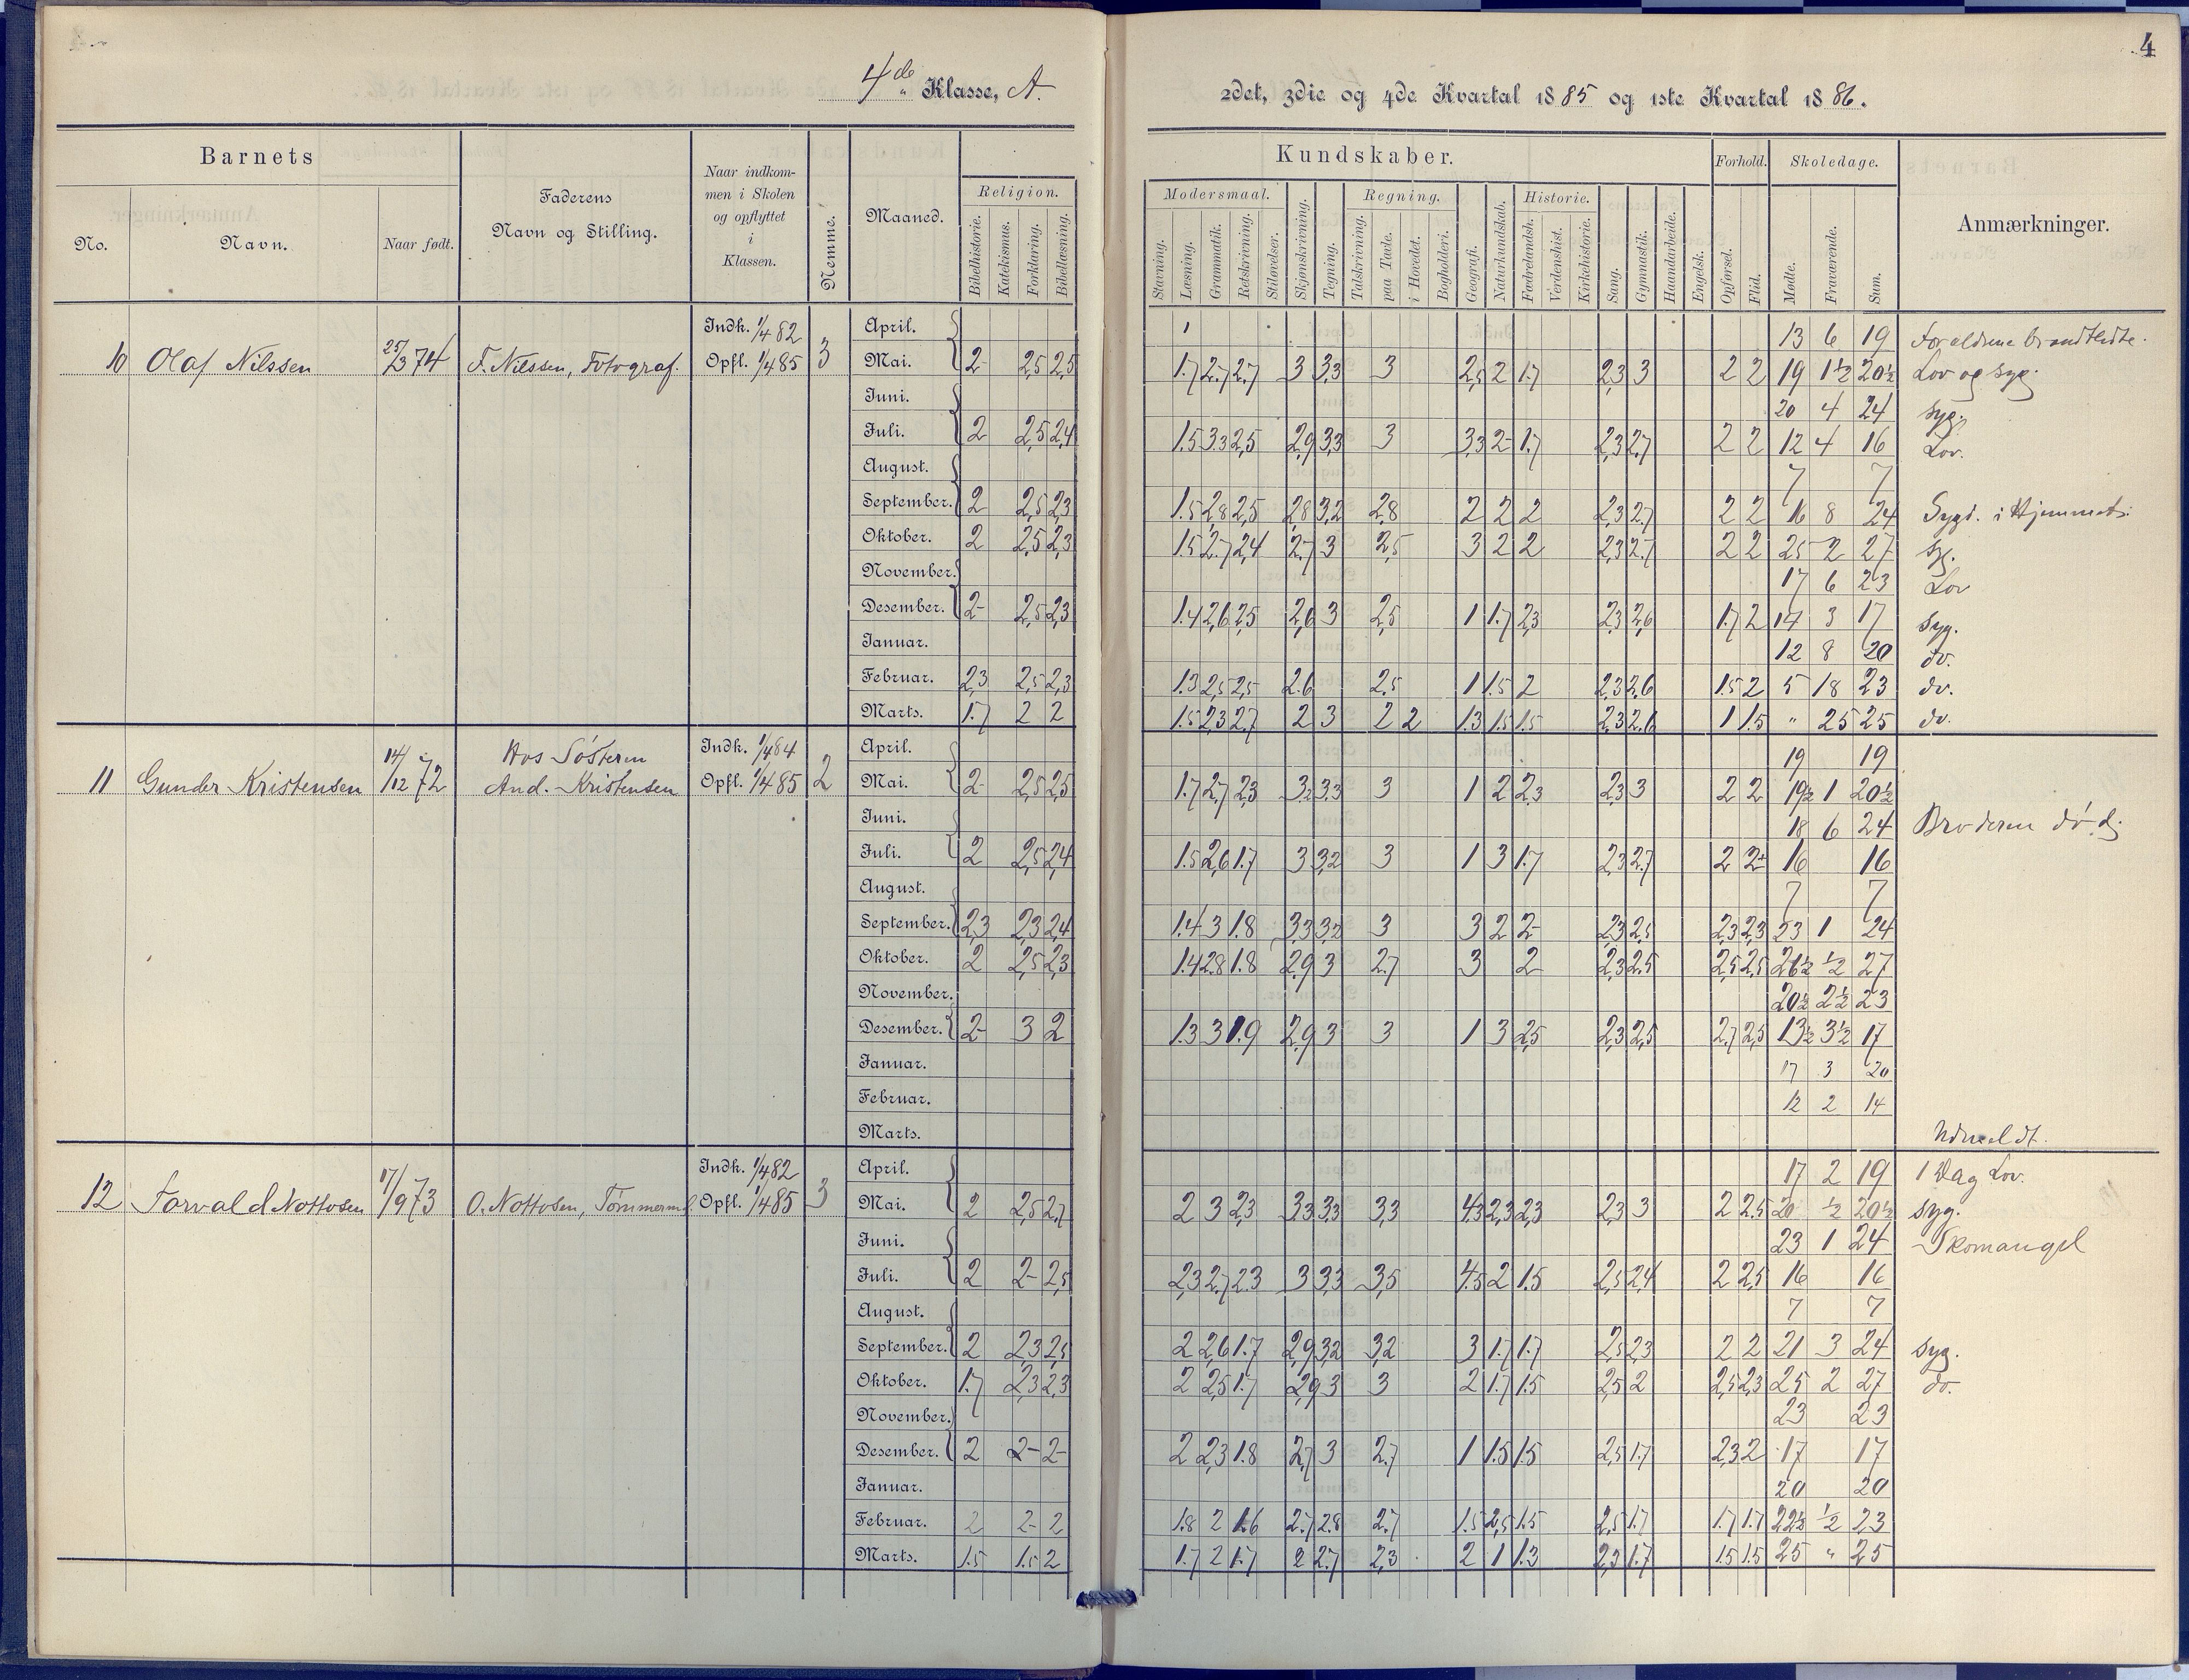 4de Klasse, A.
Barnets
No.
Navn.
Naar født.
Faderens
Navn og Stilling.
Naar indkom-
men i Skolen
og opflyttet
i
Klassen.
Nemme.
Maaned.
Religion.
Bibelhistorie.
Katekismus.
Forklaring.
Bibellæsning.
10 Olaf Nilssen 25/3 74 F. Nilssen, Fotograf. Indk. 1/4 82 Opfl. 1/4 85 3
April.
Mai. 2- 2,5 2,5
Juni.
Juli. 2 2,5 2,4
August.
September. 2 2,5 2,3
Oktober. 2 2,5 2,3
November.
Desember. 2- 2,5 2,3
Januar.
Februar. 2,3 2,5 2,3
Marts. 1.7 2 2
11 Gunder Kristensen 14/12 72 Hos Søsteren And. Kristensen Indk. 1/4 84 Opfl. 1/4 85 2
April.
Mai. 2- 2,5 2,5
Juni.
Juli. 2 2,5 2,4
August.
September. 2,3 2,3 2,4
Oktober. 2 2,5 2,3
November.
Desember. 2- 3 2
Januar.
Februar.
Marts.
12 Torvald Nottosen 17/9 73 O. Nottosen, Tømmerm. Indk. 1/4 82 Opfl. 1/4 85 3
April.
Mai. 2 2,5 2,7
Juni.
Juli. 2 2- 2,5
August.
September. 2 2,3 2,5
Oktober. 1.7 2,3 2,3
November.
Desember. 2 2- 2-
Januar.
Februar. 2 2- 2
Marts. 1.5 1.5 2
4
2det, 3die og 4de Kvartal 1885 og 1ste Kvartal 1886.
Kundskaber.
Forhold.
Skoledage.
Anmærkninger.
Modersmaal.
Regning.
Historie.
Stavning.
Læsning.
Grammatik.
Retskrivning.
Stiløvelser.
Skjønskrivning.
Tegning.
Talskrivning.
paa Tavle.
i Hovedet.
Bogholderi.
Geografi.
Naturkundskab.
Fædrelandsh.
Verdenshist.
Kirkehistorie.
Sang.
Gymnastik.
Haandarbeide.
Engelsk.
Opførsel.
Flid.
Mødte.
Fraværende.
Sum.
13 6 19 Forældrene brandtledte.
1.7 2.7 2,7 3 3,3 3 2,5 2 1.7 2,3 3 2 2 19 1½ 20½ Lov og syg.
20 4 24 syg.
1.5 3.3 2,5 2,9 3,3 3 3,3 2- 1.7 2,3 2,7 2 2 12 4 16 Lov.
7 7
1.5 2,8 2,5 2,8 3,2 2,8 2 2 2 2,3 2,7 2 2 16 8 24 Sygd. i Hjemmet.
1.5 2.7 2,4 2.7 3 2,5 3 2 2 2,3 2.7 2 2 25 2 27 syg.
17 6 23 Lov
1.4 2,6 2,5 2,6 3 2,5 1 1.7 2,3 2,3 2,6 1.7 2 14 3 17 syg.
12 8 20 do.
1.3 2,5 2,5 2.6 2.5 1 1.5 2 2,3 2,6 1.5 2 5 18 23 do.
1.5 2,3 2.7 2 3 2 2 1.3 1.5 1.5 2,3 2.6 1 1.5 " 25 25 do.
19 19
1.7 2,7 2,3 3,2 3,3 3 1 2 2,3 2,3 3 2 2 19½ 1 20½
18 6 24 Broderen død.
1.5 2,6 1.7 3 3,2 3 1 3 1.7 2,3 2,7 2 2+ 16 16
7 7
1.4 3 1.8 3,3 3,2 3 3 2 2- 2,3 2,5 2,3 2,3 23 1 24
1.4 2.8 1.8 2,9 3 2.7 3 2 2,3 2,5 2,5 2,5 26½ ½ 27
20½ 2½ 23
1.3 3 1.9 2,9 3 3 1 3 2,5 2,3 2,5 2.7 2,5 13½ 3½ 17
17 3 20
12 2 14
Udmeldt.
17 2 19 1 Dag Lov.
2 3 2,3 3,3 3,3 3,3 4,3 2,3 2,3 2,3 3 2 2.5 20 ½ 20½ syg.
23 1 24 Skomangel
2,3 2,7 2,3 3 3,3 3,5 4.5 2 1.5 2,5 2,4 2 2,5 16 16
7 7
2 2,6 1.7 2,9 3,2 3,2 3 1.7 1.7 2,5 2,3 2 2 21 3 24 syg.
2 2,5 1.7 2,9 3 3 2 1.7 1.5 2,5 2 2,5 2,3 25 2 27 do.
23 23
2 2,3 1.8 2,7 3 2.7 1 1.5 1.5 2,5 1.7 2,3 2 17 17
20 20
1.8 2 1.6 2.7 2.8 2.7 1.5 2,5 1.5 2,5 1.7 1.7 1.7 22½ ½ 23
1.7 2 1.7 2 2.7 2,3 2 1 1.3 2,3 1.7 1.5 1.5 25 " 25